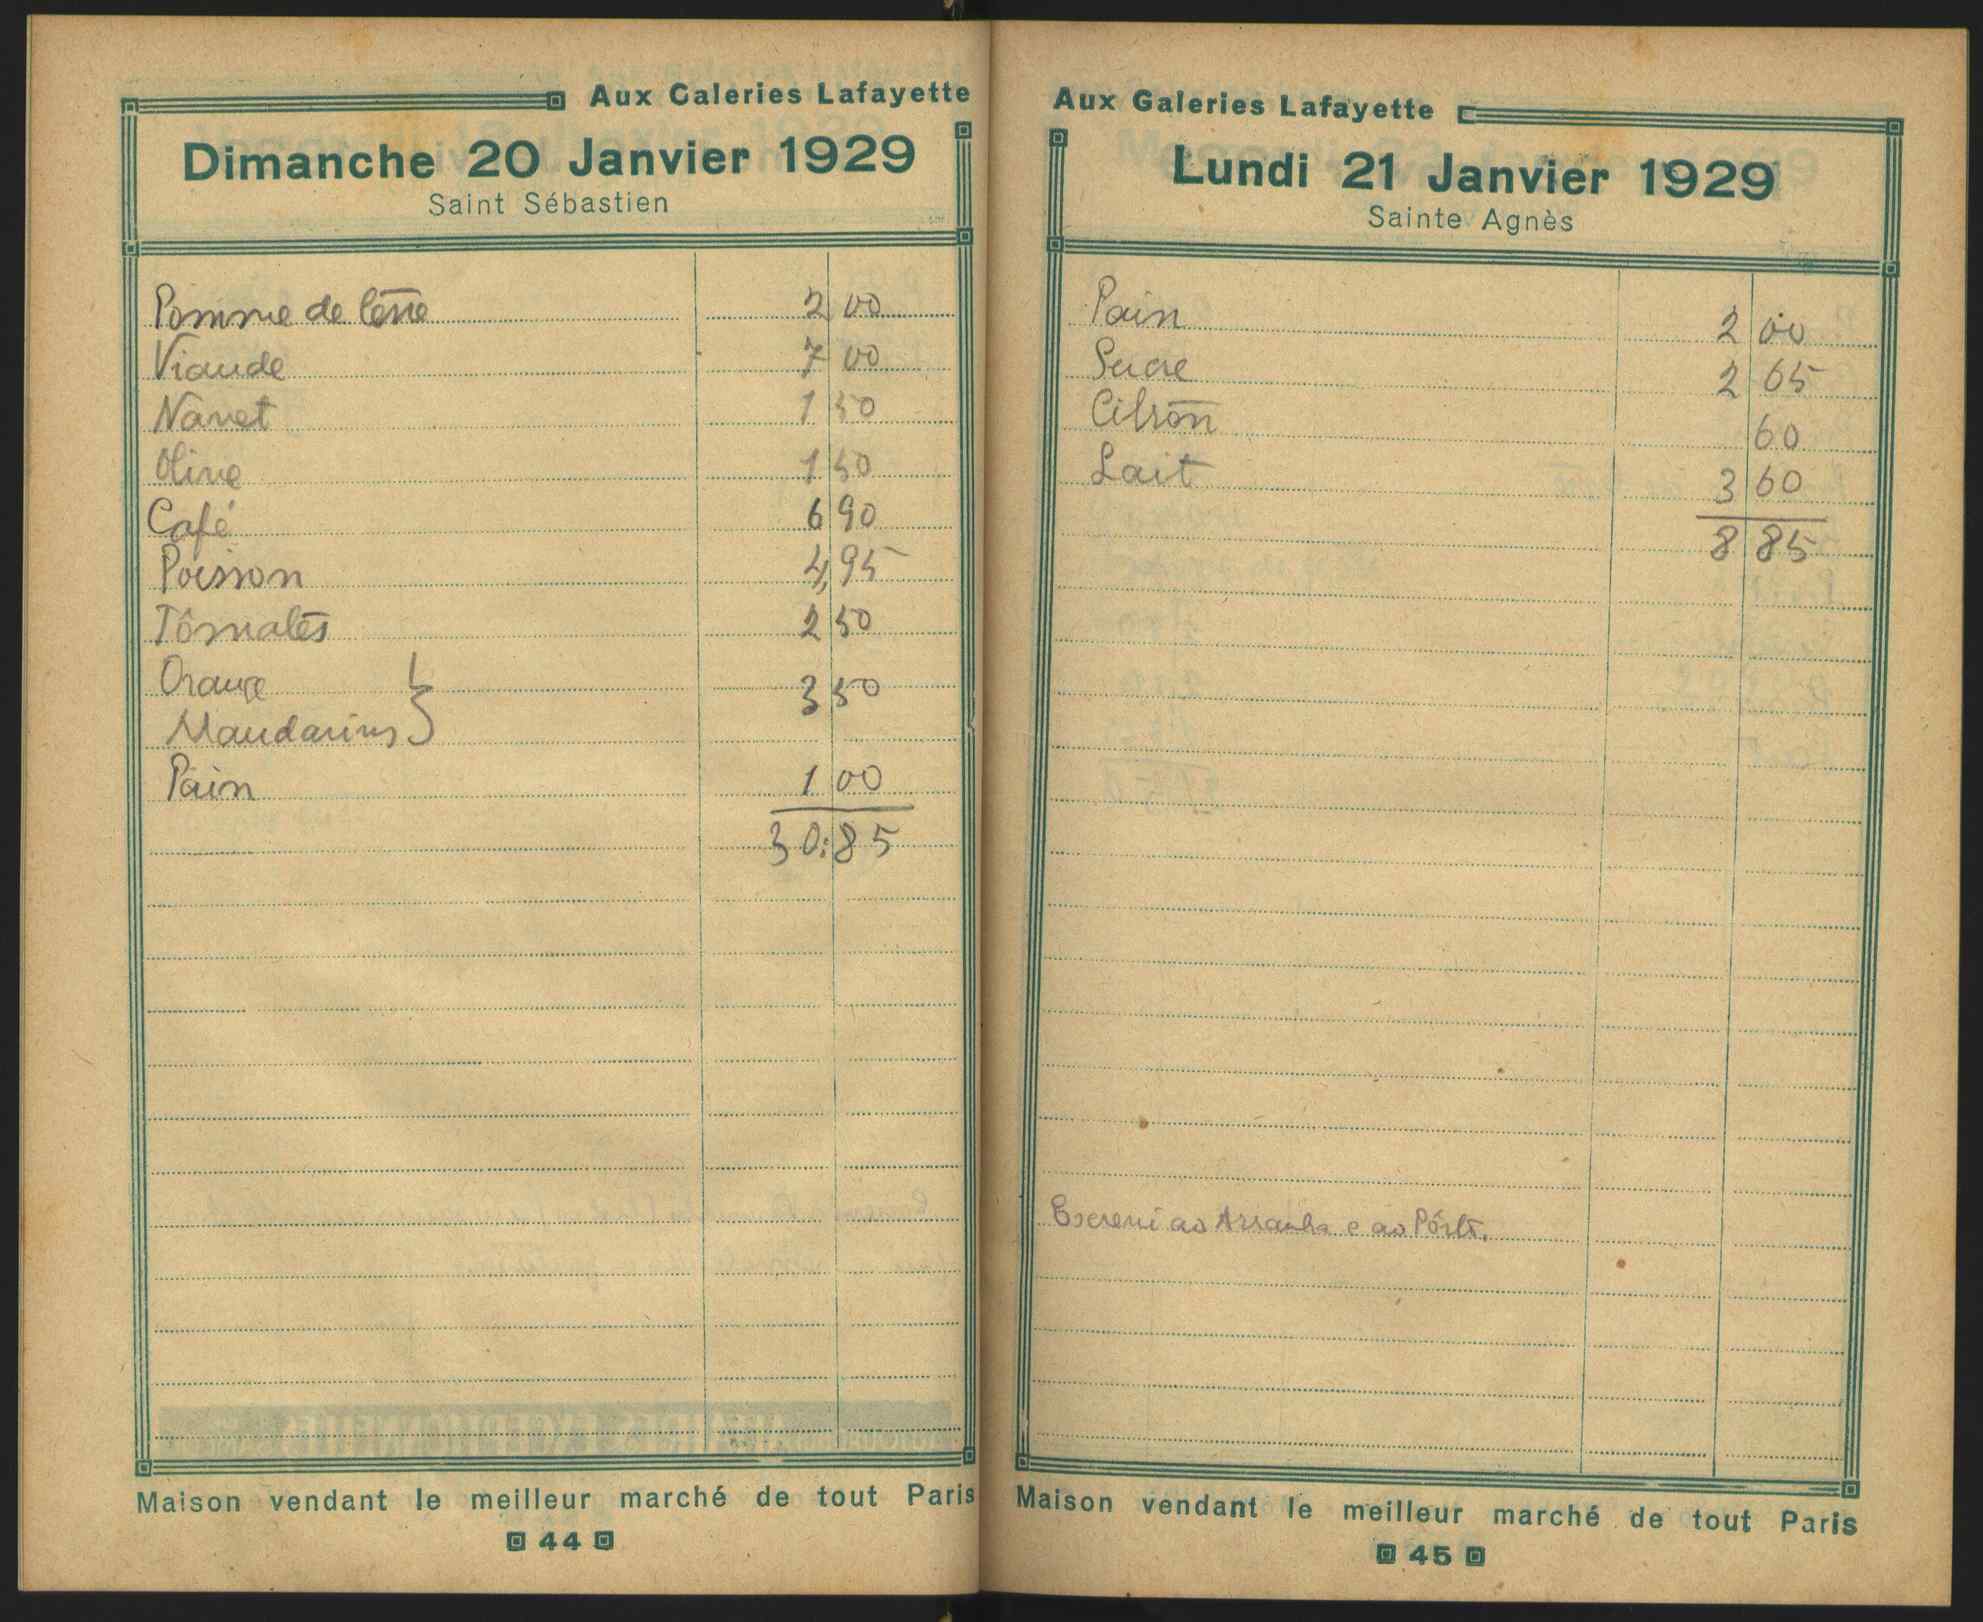 Aux Galeries Lafayette
Dimanche 20 Janvier 1929
Saint Sébastien
Pomme de terre 2 00
Viande 7 00
Navet 1 50
Olive 1 50
Café 6 90
Poisson 4,95
Tômates 2 50
Orange 3 50
Mandarins
Pain 1 00
30:85
Maison vendant le meilleur marché de tout Paris
44
Aux Galeries Lafayette
Lundi 21 Janvier 1929
Sainte Agnès
Pain 2 00
Sucre 2 65
Citron 60
Lait 3 60
8 85
Escrevi ao Arranha e ao Pôrto.
Maison vendant le meilleur marché de tout Paris
45